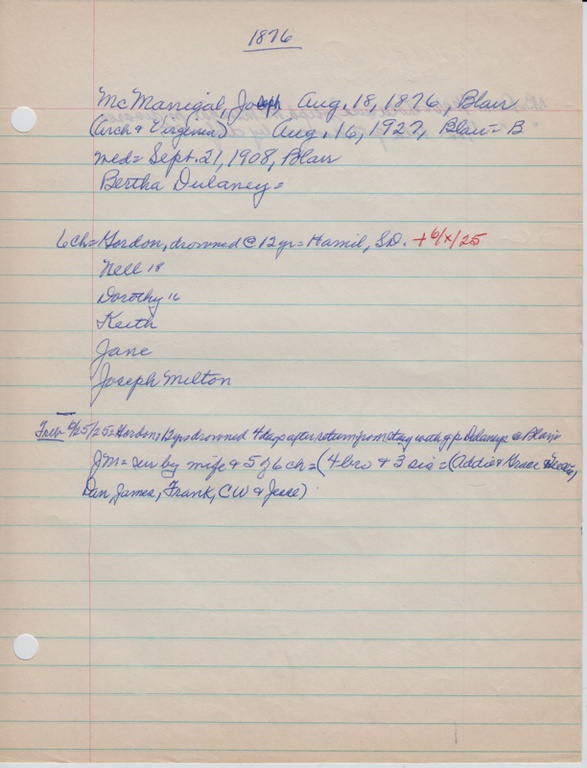 1876
McManigal, Joseph Aug. 18, 1876, Blair
(Arch & Virginia) Aug. 16, 1927, Blair = B
med = Sept. 21, 1908, Blair
Bertha Dulaney =
6 ch = Gordon, drowned @ 12 yr = Hamil, S.D. + 6/x/25
Nell 18
Dorothy 16
Keith
Jane
Joseph Milton
Trib 6/25/25 = Gordon, 12 yrs drowned 4 days after return from stay with g p Dulaneys @ Blair
JM = sur by wife & 5 of 6 ch = (4 bro & 3 sis = (Addie & Grace &
Dan, James, Frank, CW & Jesse)